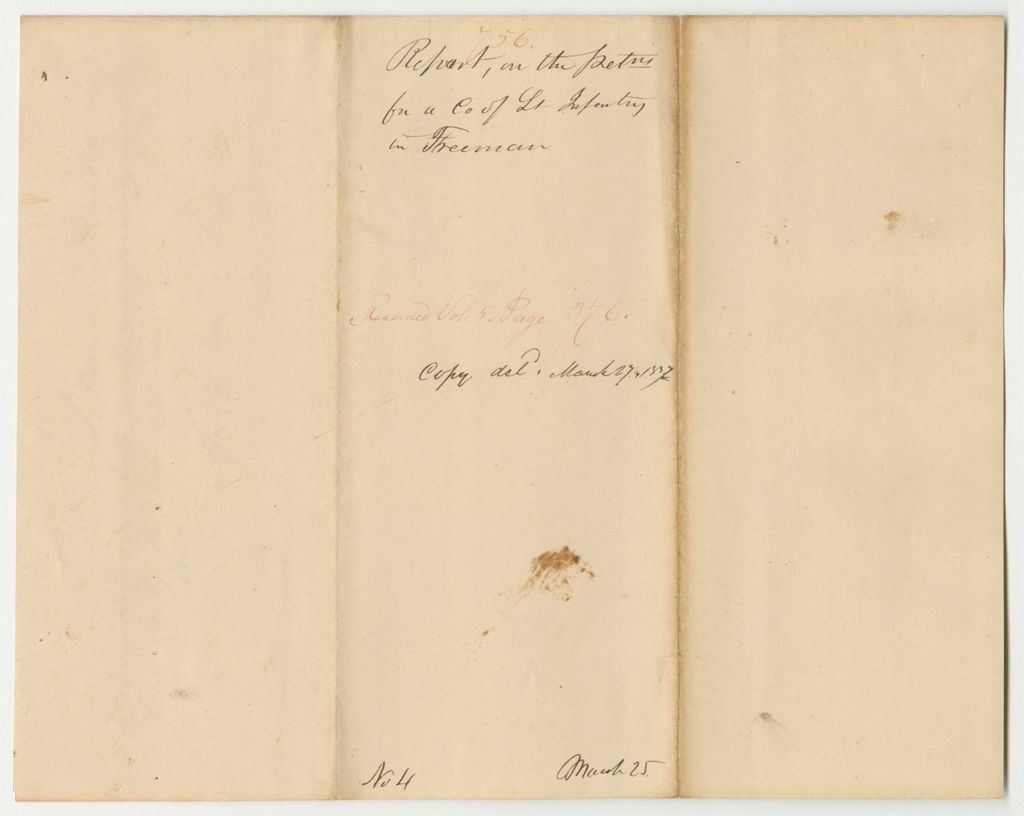 756.
Report, on the petns
for a Co of Lt Infantry
in Freeman
Recorded Vol. 5. Page 376.
Copy deld. March 27, 1837
No 4
March 25